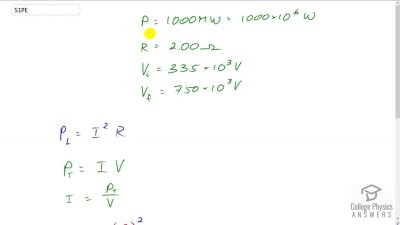 51PE
P = 1000MW = 1000×10⁶ W
R = 2.00 Ω
Vᵢ = 335×10³ V
V_f = 750×10³ V
P_L = I² R
P_T = I V
I = P_T / V
College Physics
ANSWERS.COM